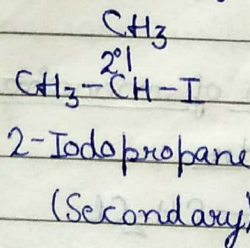 CH3
2°|
CH3-CH-I
2-Iodopropane
(Secondary)